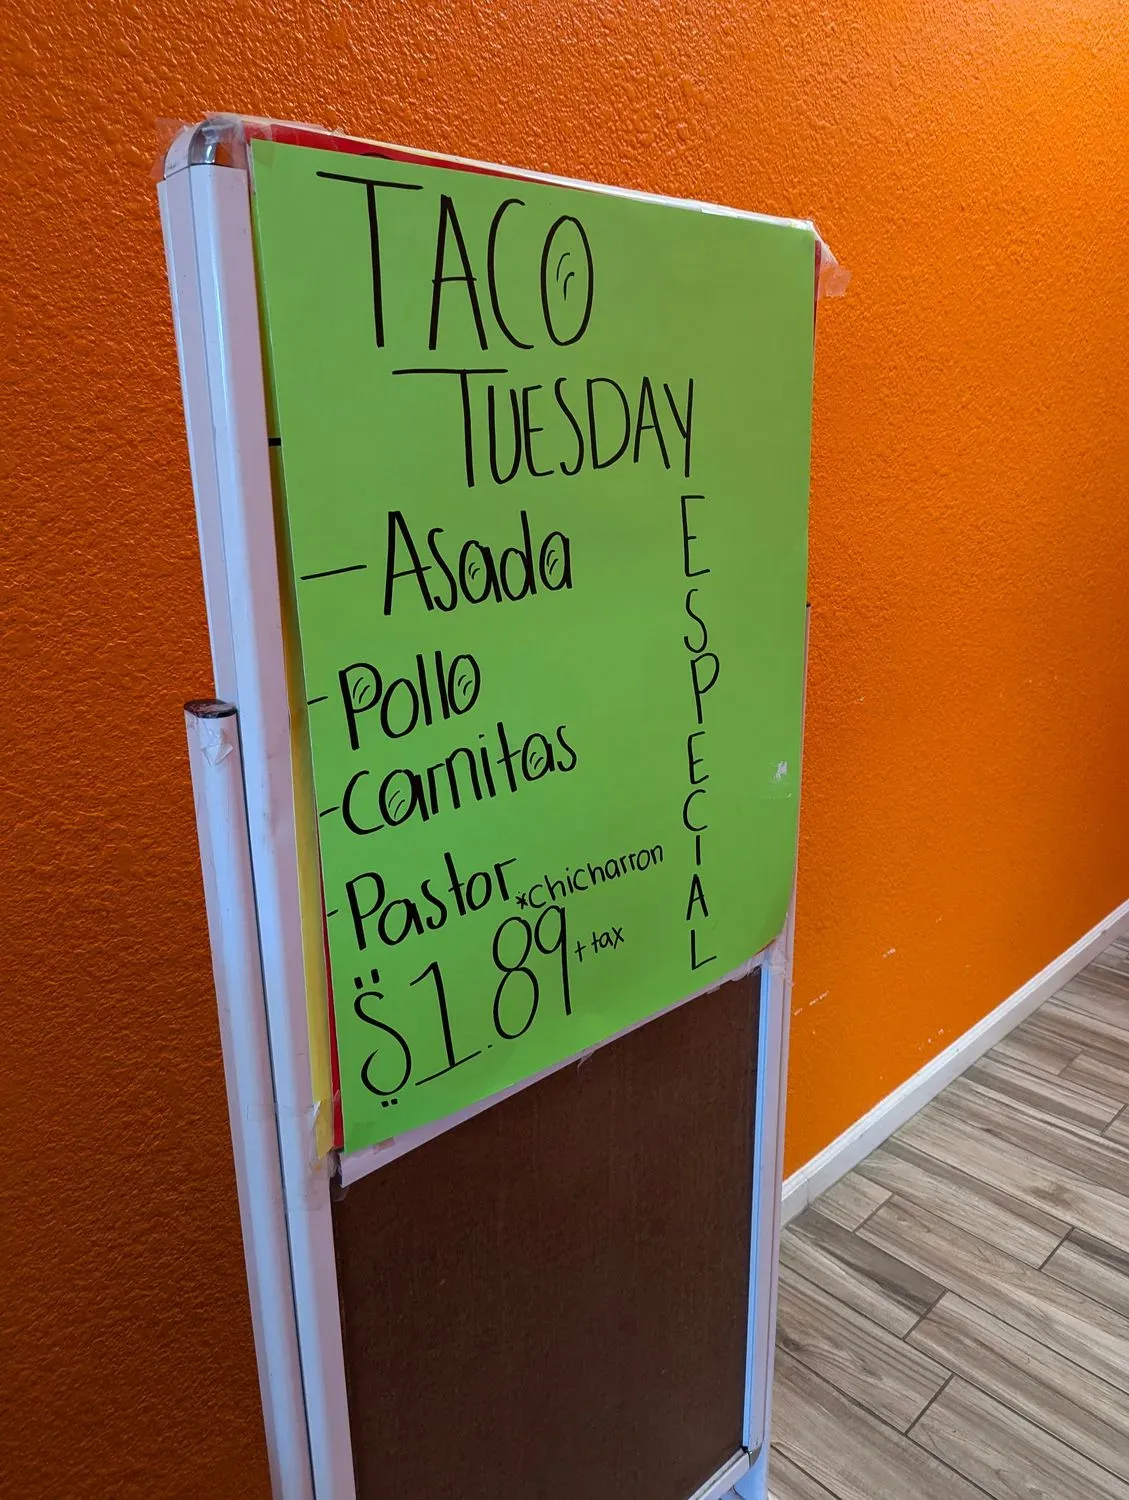 TACO
TUESDAY
- Asada
- Pollo
- carnitas
- Pastor *chicharron
$1.89 + tax
ESPECIAL